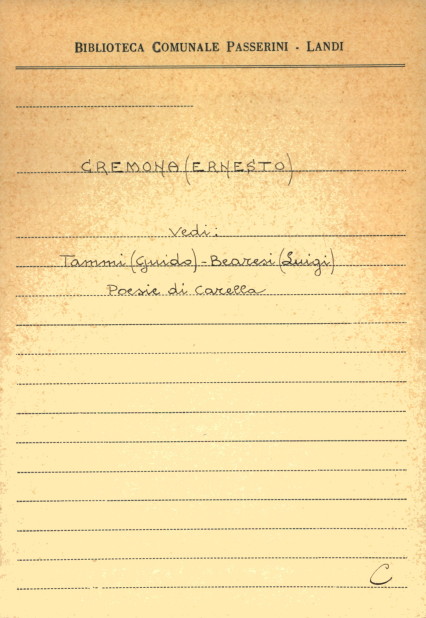 BIBLIOTECA COMUNALE PASSERINI - LANDI
CREMONA (ERNESTO)
Vedi:
Tammi (Guido) - Bearesi (Luigi)
Poesie di Carella
C